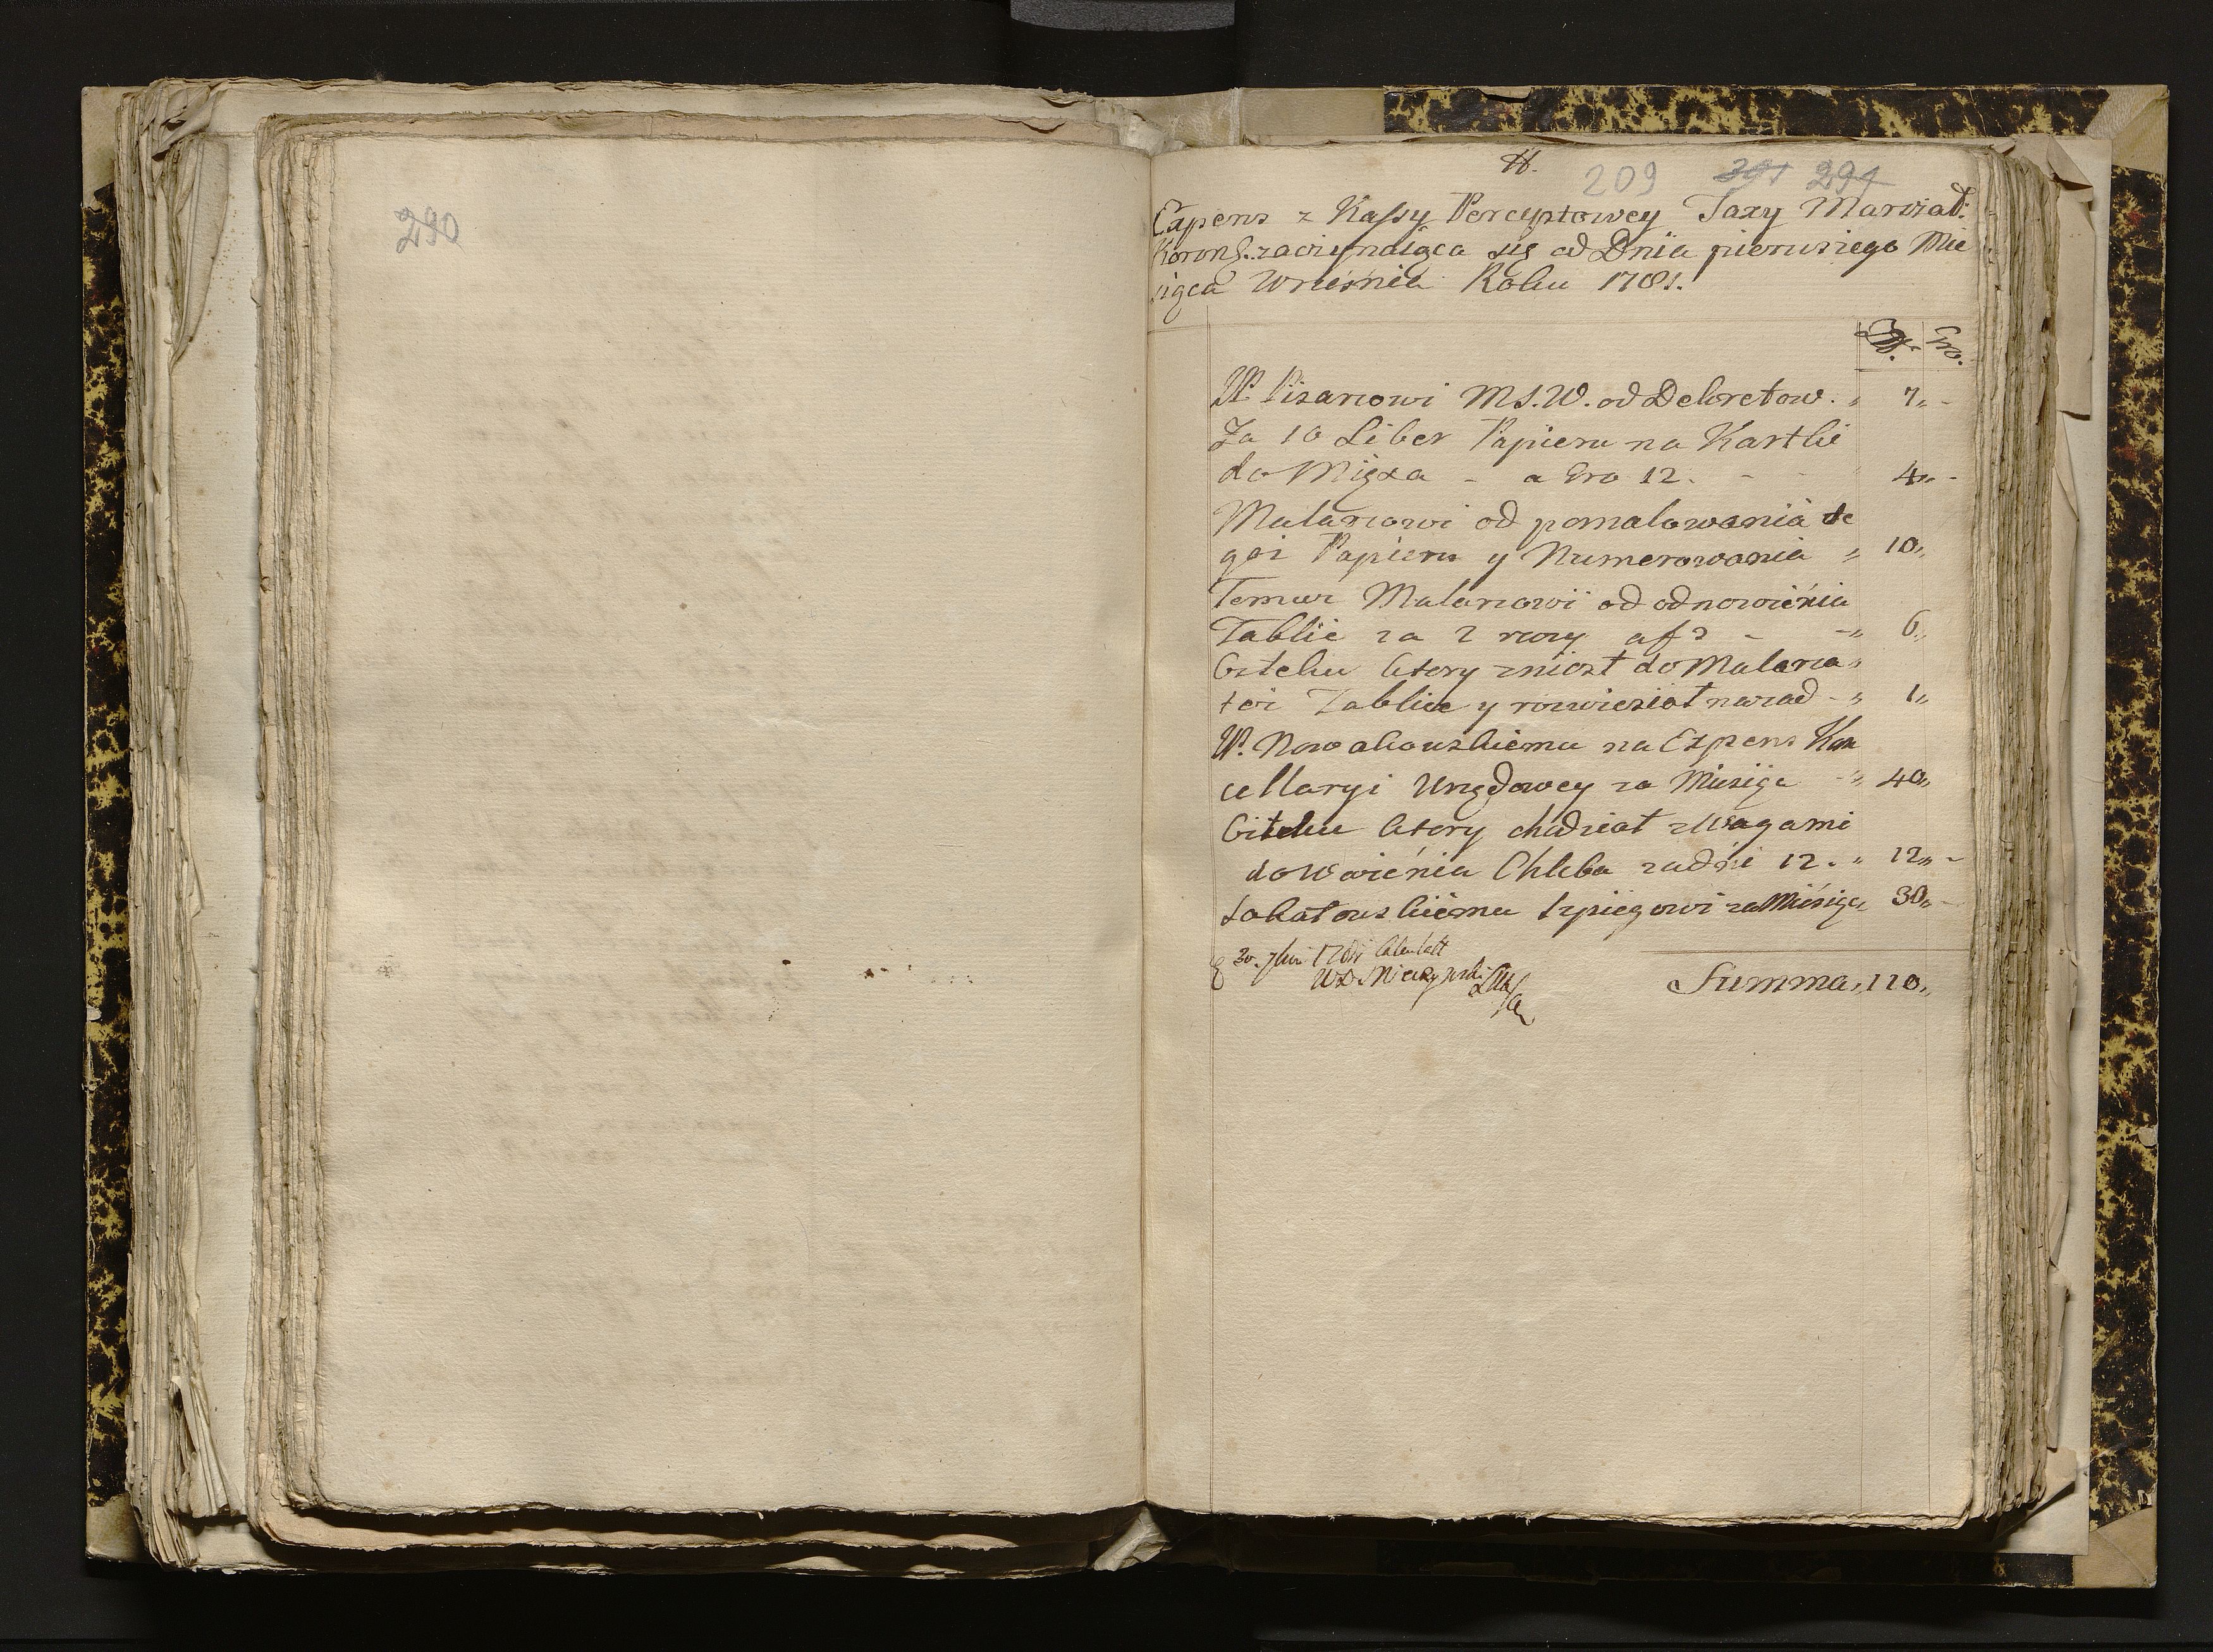 290
H.
209 291 294
Expens z Kassy Perceptowey Taxy Marszał:
Koronẽ. zaczynaiąca się od Dnia pierwszego Mie
siąca Wrześnià Roku 1781.
Gro.
W. Pisarzowi M.S.W. od Dekretow. „ 7„ -
Za 10 Liber Papieru na Kartki
do Mięsa - a Gro 12. - - 4„ -
Malarzowi od pomalowania te
goż Papieru y Numerowania „ 10„
Temuż Malarzowi od odnowienia
Tablic za 2 razy a f 3 - -„ 6„
Czteku ktory zniosł do Malarza„
toż Tablice y rozwieszał nazad -„ 1„
W. Nowakowskiemu na Expens Kan
cellaryi Urzędowey za Miesiąc -„ 40„
ktory chodział z Wagami
do Ważenia Chleba za dni 12. „ 12„ -
Sokatowskiemu szpiegowi za Miesiąc„ 30„ -
30. 7bri 1781
Summa„ 110„